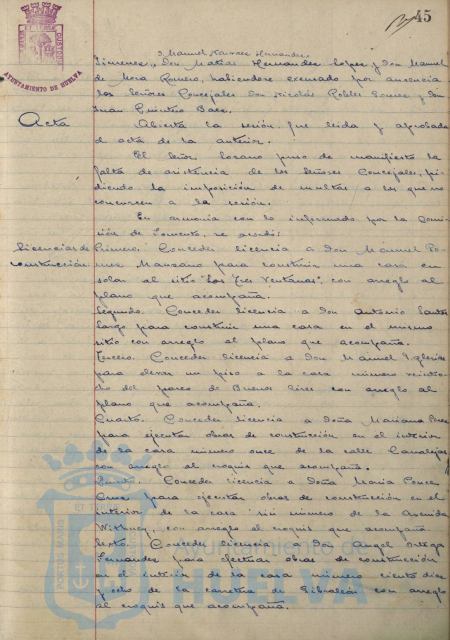 45
AYUNTAMIENTO DE HUELVA
Manuel Hernandez
Jimenez, Don Matias Hernandez Lopez y Don Manuel
de Mora Romero, habiendose excusado por ausencia
los Señores Concejales Don Nicolás Robles Gomez y Don
Juan Quintero Baez.
Acta
Abierta la sesión, fue leida y aprobada
el acta de la anterior.
El Señor Lozano puso de manifiesto la
falta de asistencia de los Señores Concejales, pi-
diendo la imposición de multas a los que no
concurren a la sesión.
En armonia con lo informado por la Comi-
sión de Fomento, se acordó:
Licencias de
construcción
Primero. Conceder licencia a Don Manuel Ro-
mero Manzano para construir una casa en
solar al sitio "Las Tres Ventanas", con arreglo al
plano que acompaña.
Segundo. Conceder licencia a Don Antonio
Largo para construir una casa en el mismo
sitio con arreglo al plano que acompaña.
Tercero. Conceder licencia a Don Manuel Iglesias
para elevar un piso a la casa número veintio-
cho del paseo de Buenos Aires con arreglo al
plano que acompaña.
Cuarto. Conceder licencia a Doña Mariana
para ejecutar obras de construcción en el interior
de la casa número once de la calle Canalejas
con arreglo al croquis que acompaña.
Quinto. Conceder licencia a Doña Maria Ponce
para ejecutar obras de construcción en el
interior de la casa sin número de la Avenida
Withney, con arreglo al croquis que acompaña.
Sexto. Conceder licencia a Don Angel Ortega
Fernandez para efectuar obras de construcción
en el interior de la casa número ciento diez
y ocho de la carretera de Gibraleón con arreglo
al croquis que acompaña.
Ayuntamiento de
HUELVA